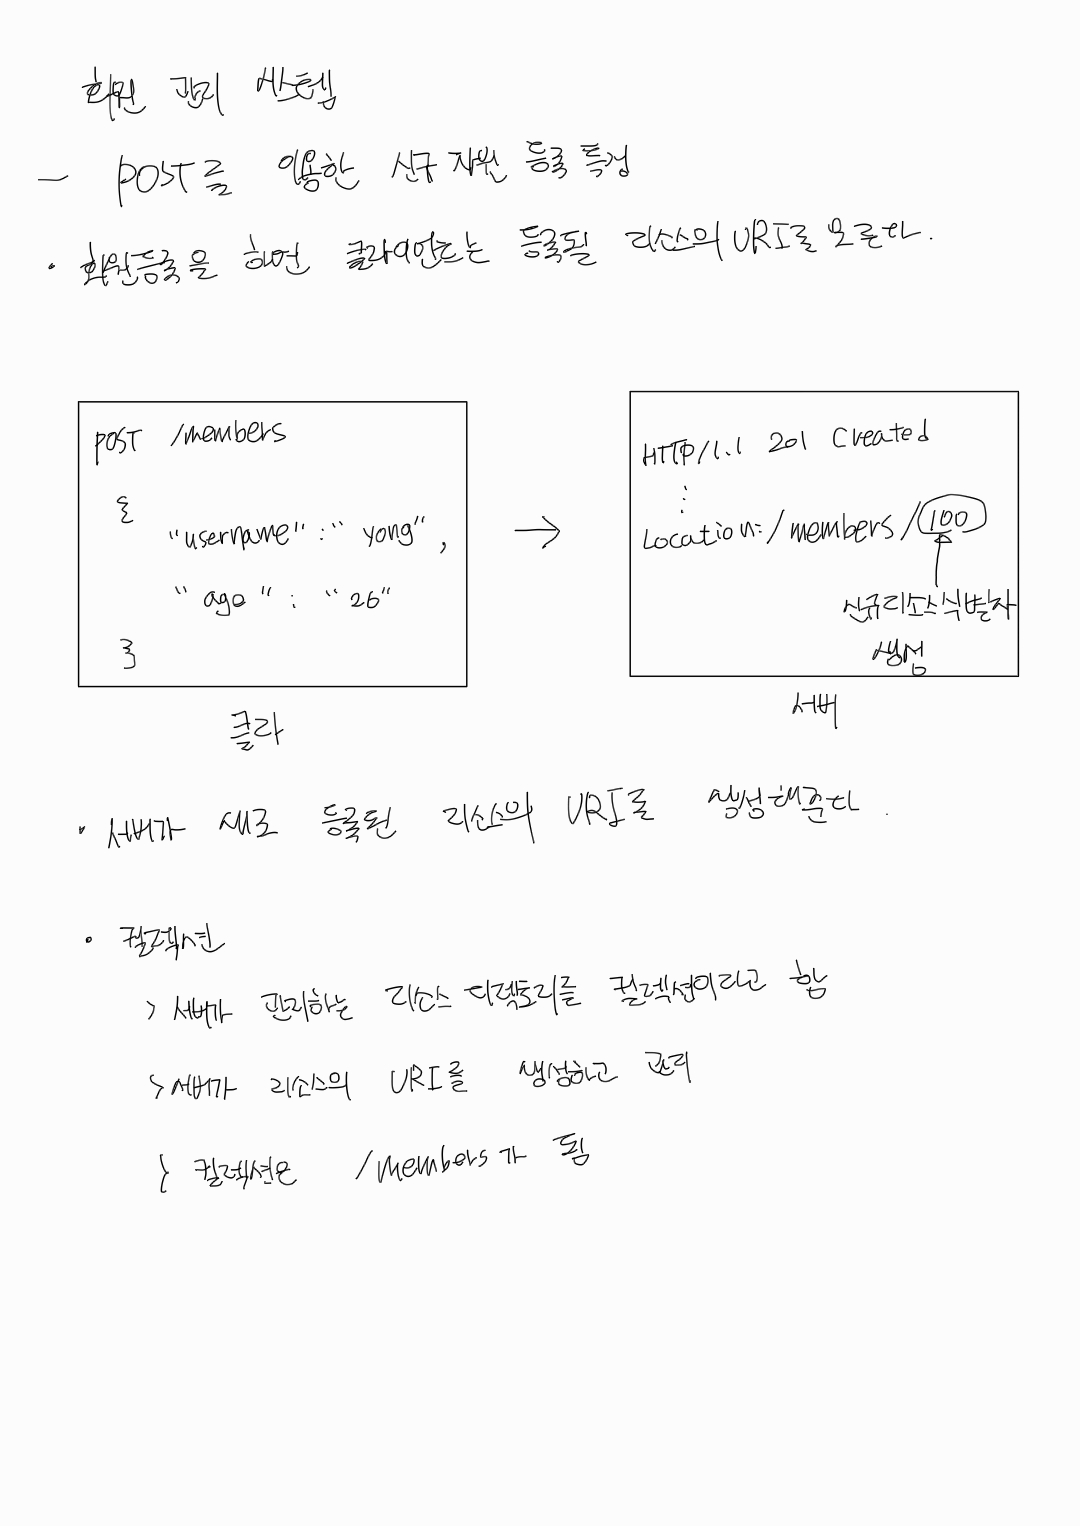 회원 관리 시스템
- POST를 이용한 신규 자원 등록 특징
• 회원등록을 하면 클라이언트는 등록될 리소스의 URI를 모른다.
POST /members
{
"username" : "yong",
"age" : "26"
}
클라
→
HTTP/1.1 201 Created
⋮
Location: /members/100
신규리소스식별자
생성
서버
• 서버가 새로 등록된 리소스의 URI를 생성해준다.
• 컬렉션
> 서버가 관리하는 리소스 디렉토리를 컬렉션이라고 함
> 서버가 리소스의 URI를 생성하고 관리
> 컬렉션은 /members가 됨